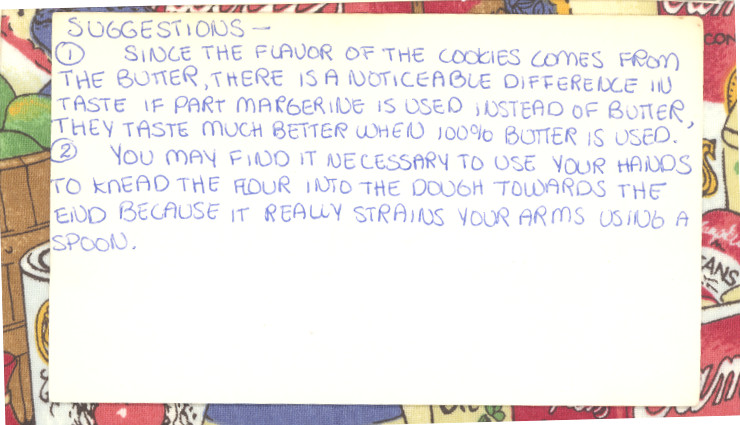 SUGGESTIONS —
① SINCE THE FLAVOR OF THE COOKIES COMES FROM
THE BUTTER, THERE IS A NOTICEABLE DIFFERENCE IN
TASTE IF PART MARGERINE IS USED INSTEAD OF BUTTER,
THEY TASTE MUCH BETTER WHEN 100% BUTTER IS USED.
② YOU MAY FIND IT NECESSARY TO USE YOUR HANDS
TO KNEAD THE FLOUR INTO THE DOUGH TOWARDS THE
END BECAUSE IT REALLY STRAINS YOUR ARMS USING A
SPOON.
CON
ANS